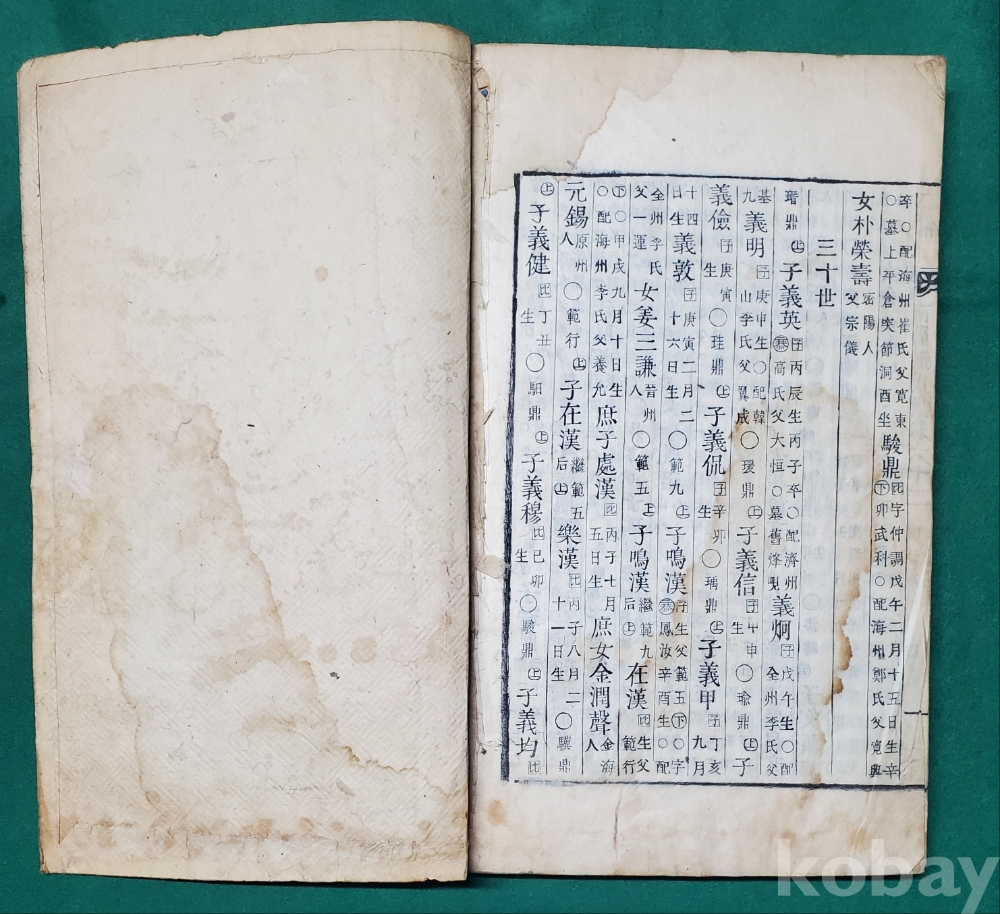 卒○配海州崔氏父寬東
○墓上平倉突節洞酉坐
駿鼎 字仲調戊午二月十五日生辛
卯武科○配海州鄭氏父寬
女朴榮壽 密陽人
父宗儀
三十世
瑨鼎 上 子義英 丙辰生丙子卒○配濟州
高氏父大恒○墓舊烽
義炯 子 戊午生○配
全州李氏父
基 義明 子 庚申生○配韓
九 山李氏父翼成 ○瑗鼎 上 子義信 子 甲申生 ○瑜鼎 上 子
義儉 子 庚寅生 ○珪鼎 上 子義侃 子 辛卯生 ○瑀鼎 上 子義甲 子 丁亥九月
十四日生 義敦 子 庚寅二月二十六日生 ○範九 上 子鳴漢 生父範五 下 ○字
鳳汝辛酉生○配
全州李氏父一運 女姜三謙 晉州人 ○範五 上 子鳴漢 繼範九后 上 在漢 生父範行
下 ○甲戌九月十日生
○配海州李氏父養允 庶子處漢 丙子七月五日生 庶女金潤聲 金海人
元錫 原州人 ○範行 上 子在漢 繼範五后 上 樂漢 丙子八月二十一日生 ○驥鼎
上 子義健 丁丑生 ○駰鼎 上 子義穆 己卯生 ○駿鼎 上 子義均
kobay